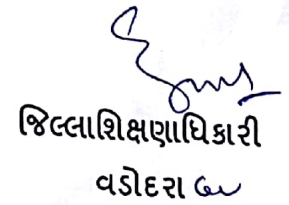 જિલ્લાશિક્ષણાધિકારી
વડોદરા